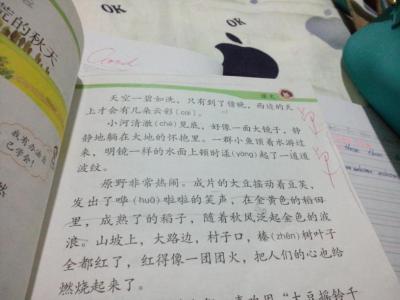 OK
OK
Good
荒的秋天
课文
天空一碧如洗，只有到了傍晚，西边的天
上才会有几朵云彩(cǎi)。
小河清澈(chè)见底，好像一面大镜子，静
静地躺在大地的怀抱里。一群小鱼顶着水游过
来，明镜一样的水面上顿时漾(yàng)起了一道道
波纹。
原野非常热闹。成片的大豆摇动着豆荚，
发出了哗(huā)啦啦的笑声，在金黄色的稻田
里，成熟了的稻子，随着秋风泛起金色的波
浪。山坡上，大路边，村子口，榛(zhēn)树叶子
全都红了，红得像一团团火，把人们的心也给
燃烧起来了。
我有办法
己学会